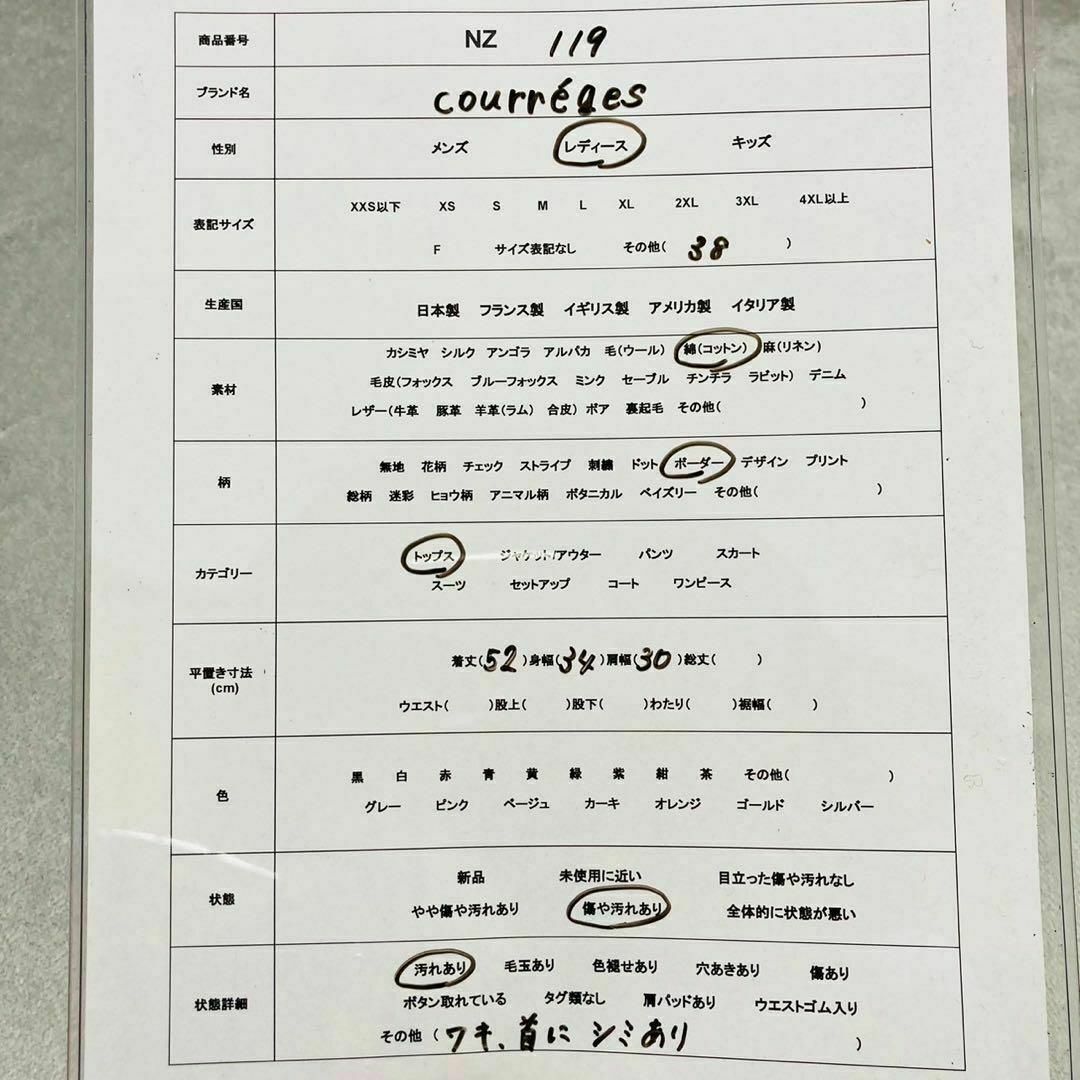 商品番号 NZ 119
ブランド名 courréges
性別 メンズ レディース キッズ
XXS以下 XS S M L XL 2XL 3XL 4XL以上
表記サイズ
F サイズ表記なし その他( 38 )
生産国 日本製 フランス製 イギリス製 アメリカ製 イタリア製
カシミヤ シルク アンゴラ アルパカ 毛(ウール) 綿(コットン) 麻(リネン)
素材 毛皮(フォックス ブルーフォックス ミンク セーブル チンチラ ラビット) デニム
レザー(牛革 豚革 羊革(ラム) 合皮) ボア 裏起毛 その他( )
無地 花柄 チェック ストライプ 刺繍 ドット ボーダー デザイン プリント
柄
総柄 迷彩 ヒョウ柄 アニマル柄 ボタニカル ペイズリー その他( )
トップス ジャケット/アウター パンツ スカート
カテゴリー
スーツ セットアップ コート ワンピース
着丈(52)身幅(34)肩幅(30)総丈( )
平置き寸法
(cm)
ウエスト( )股上( )股下( )わたり( )裾幅( )
黒 白 赤 青 黄 緑 紫 紺 茶 その他( )
色
グレー ピンク ベージュ カーキ オレンジ ゴールド シルバー
新品 未使用に近い 目立った傷や汚れなし
状態
やや傷や汚れあり 傷や汚れあり 全体的に状態が悪い
汚れあり 毛玉あり 色褪せあり 穴あきあり 傷あり
状態詳細 ボタン取れている タグ類なし 肩パッドあり ウエストゴム入り
その他 ( ワキ、首に シミあり )